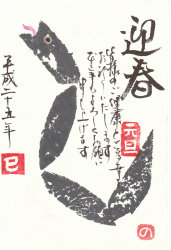 迎春
元旦
皆様のご健康とご多幸を
お祈りいたします
本年もよろしくお願い
申し上げます
平成二十五年
巳
の